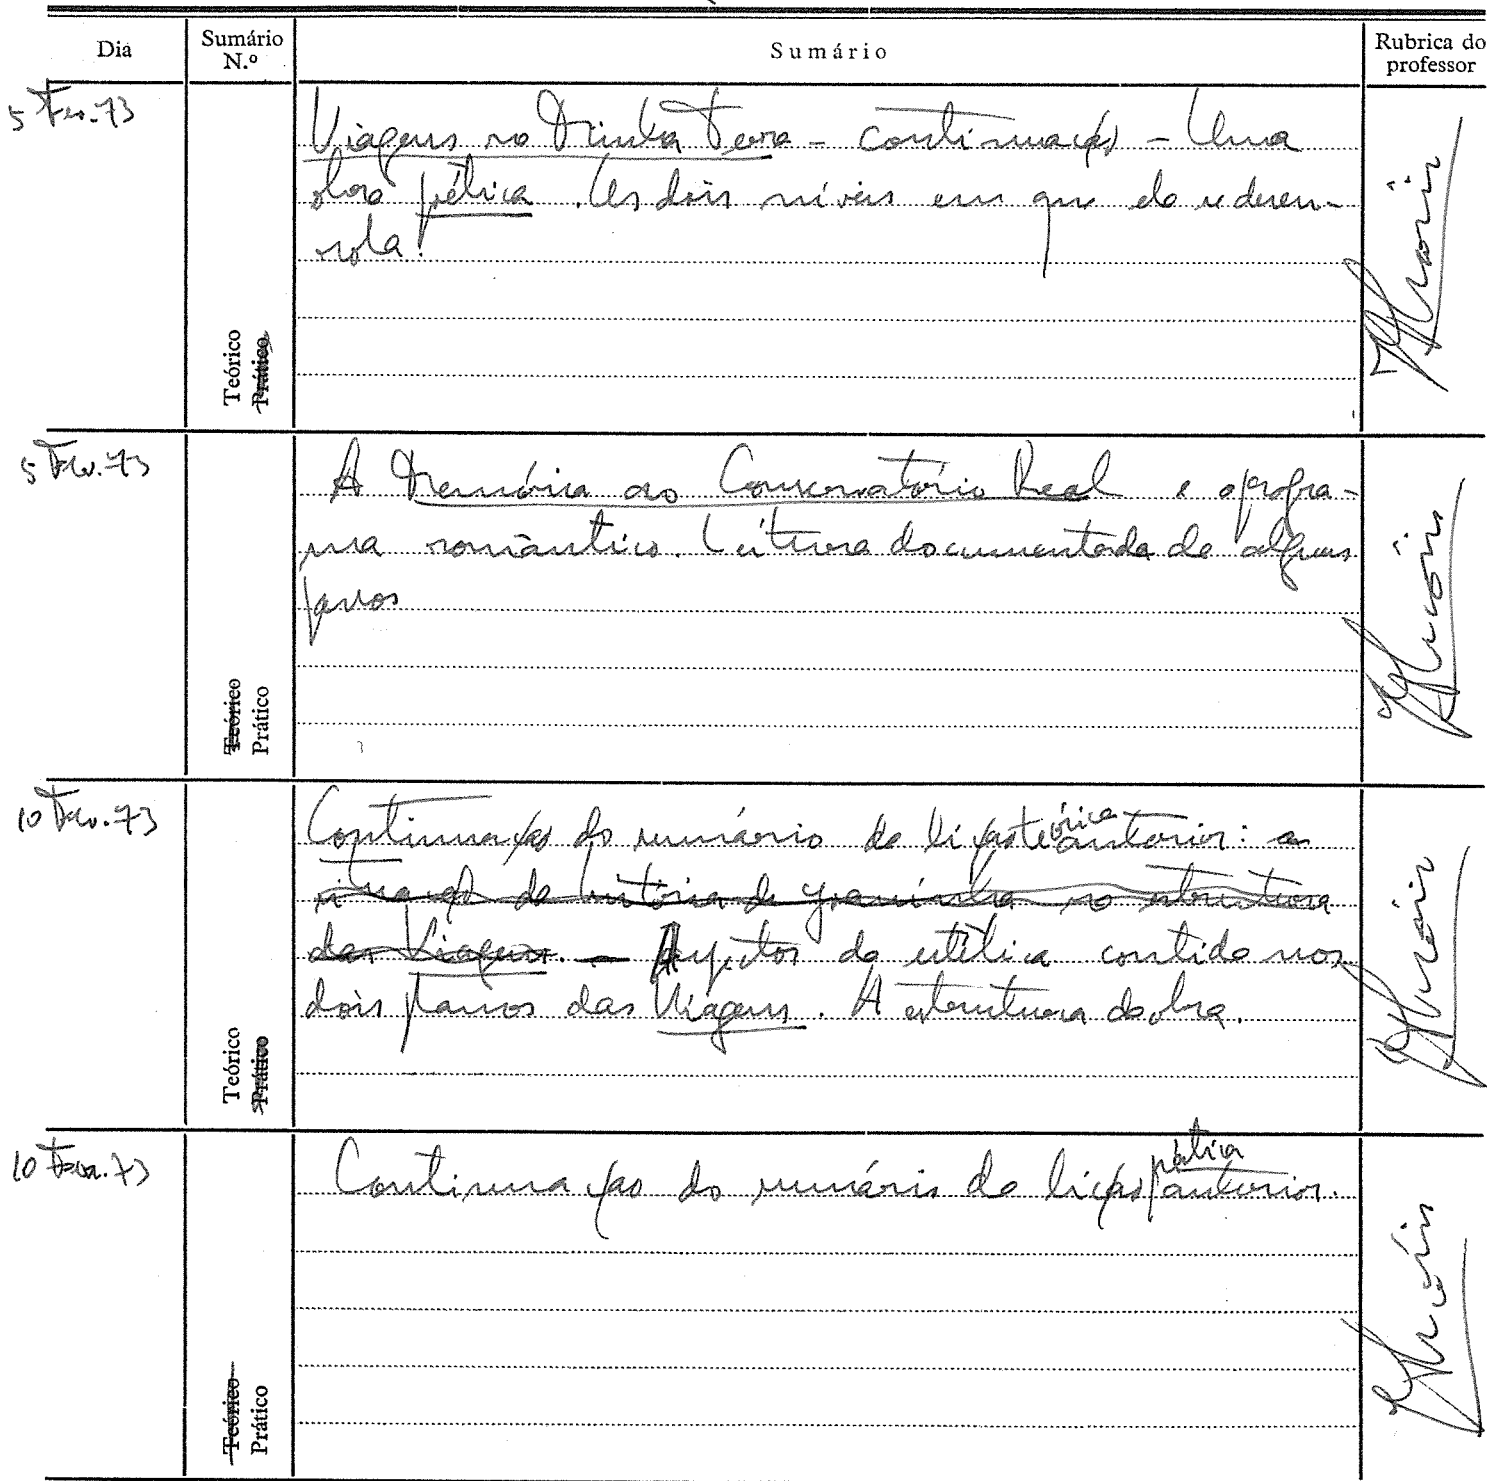 Dia
Sumário N.º
Sumário
Rubrica do professor
5 Fev. 73
Viagens na Minha Terra - continuação - Uma
obra poética. Os dois níveis em que ela se desen-
rola.
Teórico
Prático
5 Fev. 73
A Memória ao Conservatório Real e o progra-
ma romântico. Leitura documentada de alguns
passos
Teórico
Prático
10 Fev. 73
Continuação do sumário da lição teórica anterior: a
situação da história de Joaninha na estrutura
das Viagens. - Aspectos da estética contida nos
dois planos das Viagens. A estrutura da obra.
Teórico
Prático
10 Fev. 73
Continuação do sumário da lição prática anterior.
Teórico
Prático